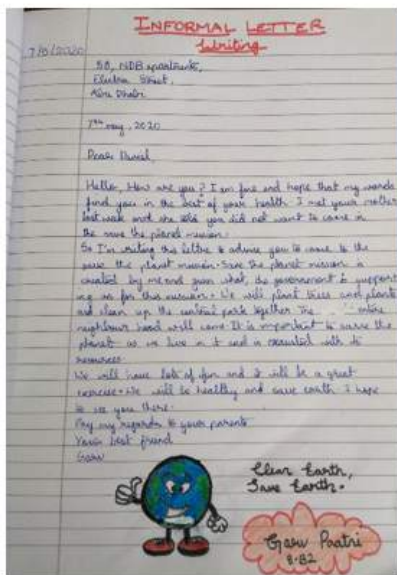 INFORMAL LETTER
Writing
7/5/2020
58, NDB apartments,
Electra Street,
Abu Dhabi
7th may, 2020
Dear
Hello, How are you? I am fine and hope that my words
find you in the best of your health. I met your mother
last week and she told you did not want to come in
the save the planet mission.
So I'm writing this letter to advise you to come to the
save the planet mission. Save the planet mission is
created by me and guess what, the government is support
ing us for this mission. We will plant trees and plants
and clean up the central park together. The entire
neighbour hood will come. It is important to save the
planet as we live in it and with its
resources.
We will have lots of fun and it will be a great
exercise. We will be healthy and save earth. I hope
to see you there.
Pay my regards to your parents
Your best friend
Garv
Clean Earth,
Save Earth.
Garv Paatni
8-B2